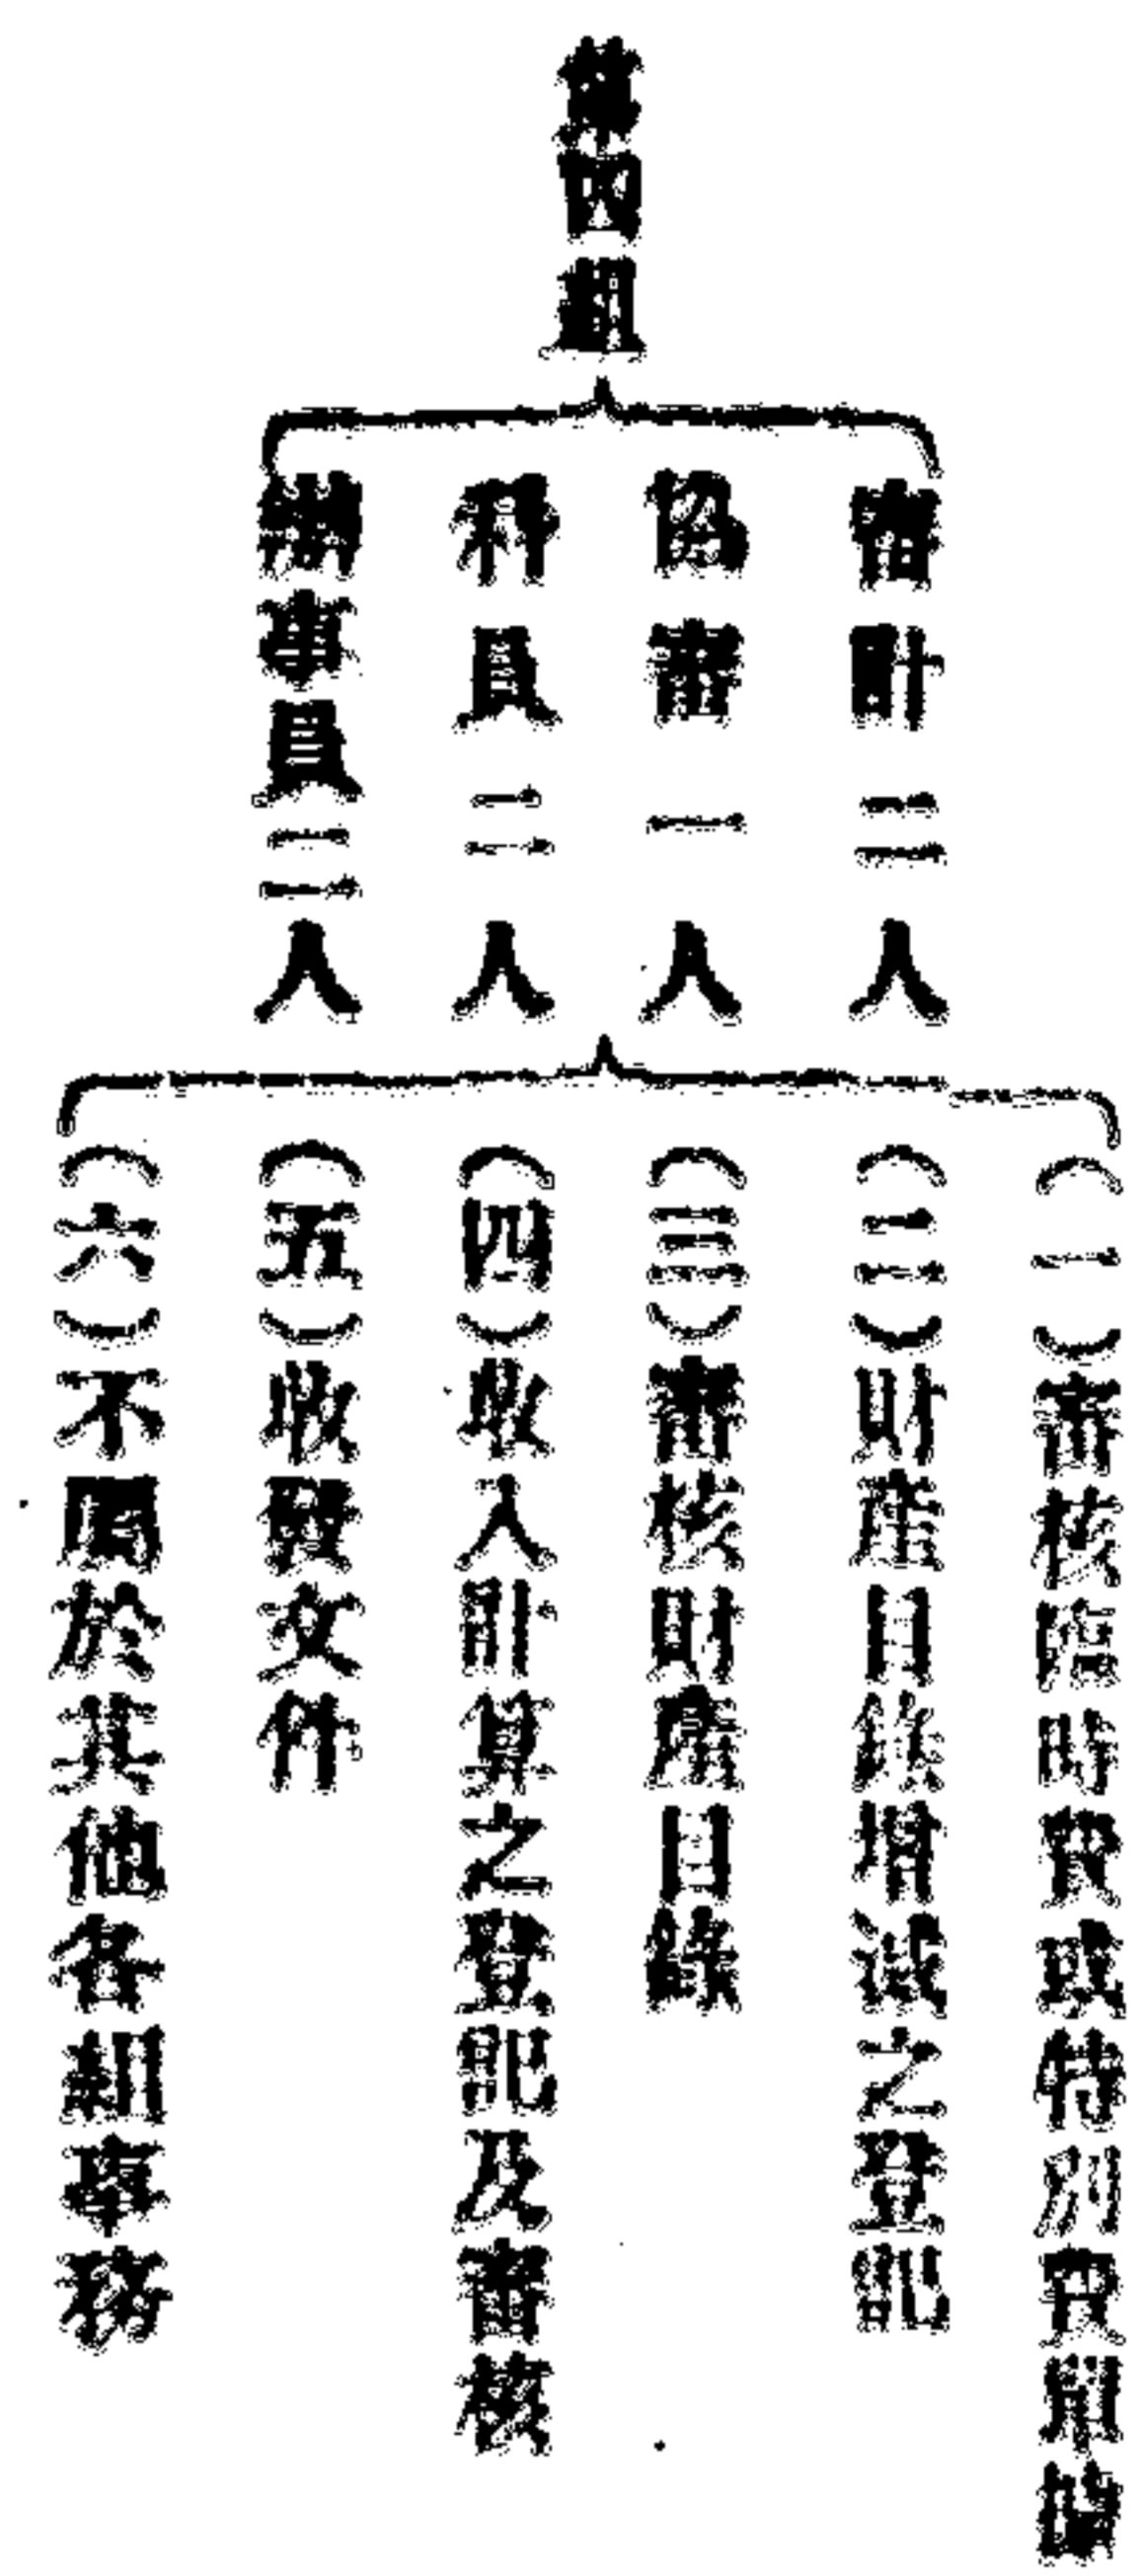 第四組
審計二人
協審一人
科員二人
辦事員二人
(一)審核臨時費或特別費單據
(二)財產目錄增減之登記
(三)審核財產目錄
(四)收入計算之登記及審核
(五)收發文件
(六)不屬於其他各組事務